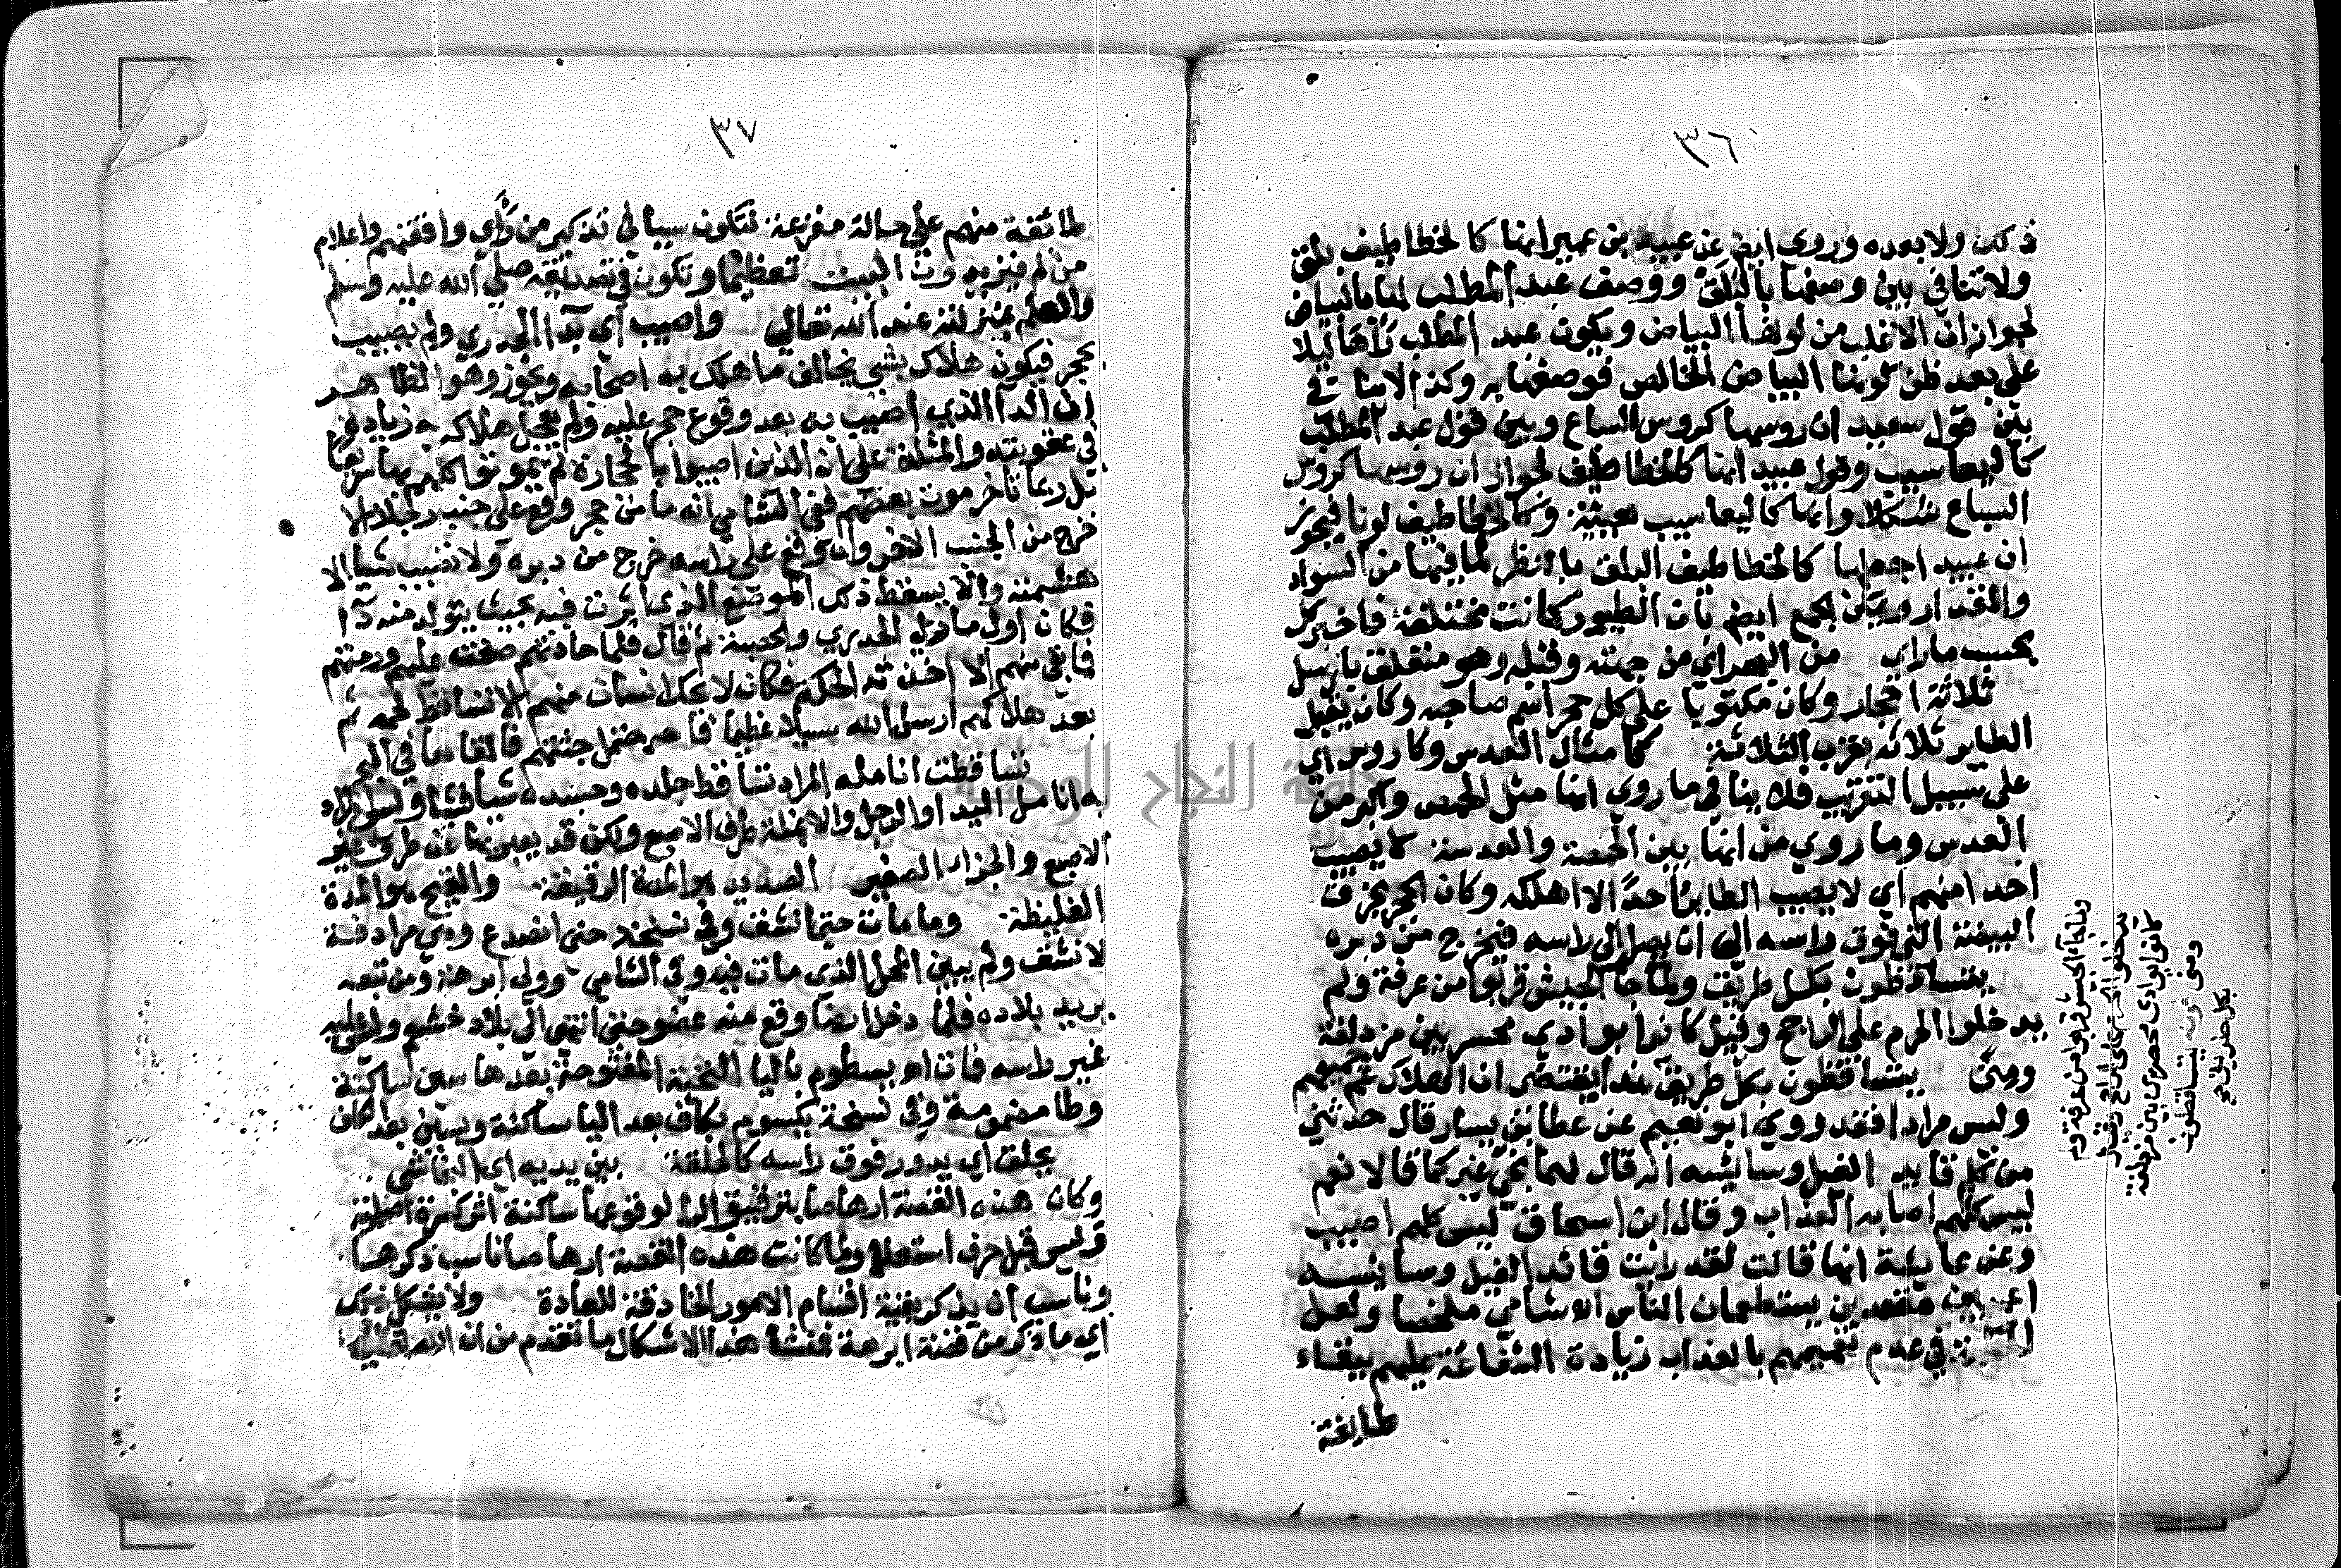 ٣٦
ذلك ولا بعده وروى ايض عن عبيد بن عمير انها كالخطاطيف بلق
ولا تنافي بين وصفها بالبلق ووصف عبد المطلب لها بالبياض
لجواز ان الاغلب من لونها البياض ويكون عبد المطلب رأها ليلا
على بعد فظن كونها البياض الخالص فوصفها به وكذا لا تنافي
بين قول سعيد ان روسها كروس السباع وبين قول عبد المطلب
كاليعاسيب وقول عبيد انها كالخطاطيف لجواز ان روسها كروس
السباع شكلا وانها كاليعاسيب هيئة وكالخطاطيف لونا فيجوز
ان عبيد اجعلها كالخطاطيف البلق بالنظر لما فيها من السواد
والمقدار ويمكن الجمع ايض بان الطيور كانت مختلفة فاخبر كل
بحسب ماراى من البحر اي من جهته وقبله وهو متعلق بارسل
ثلاثة احجار وكان مكتوبا على كل حجر اسم صاحبه وكان يقبل
الطاير ثلاثه بقرب الثلاثة كامثال العدس وكا روس اي
على سبيل التقريب فلا ينافي ما روي انها مثل الحمص واكبر من
العدس وما روي من انها بين الحمصة والعدسة لا يصيب
احدا منهم اي لا يصيب الطاير احدا الا اهلكه وكان الحجر يخرق
البيضة التي فوق راسه الى ان يصل الى راسه فيخرج من دبره
يتساقطون بكل طريق ولما جا الجيش قربوا من عرفة ولم
يدخلوا الحرم على الراجح وقيل كانوا بوادي محسر بين مزدلفة
ومنى يتساقطون بكل طريق هذا يقتضي ان الهلاك تم جميعهم
وليس مرادا فقد روي ابو نعيم عن عطا بن يسار قال حدثني
من كلم قايد الفيل وسايسه انه قال لهما نجى غيركما قالا نعم
ليس كلهم اصابه العذاب وقال ابن اسحاق ليس كلهم اصيب
وعن عايشة انها قالت لقد رايت قائد الفيل وسايسه
اعميين مقعدين يستطعمان الناس اه شامي ملخصا ولعل
الحكمة في عدم تعميمهم بالعذاب زيادة الشفاعة عليهم ببقاء
طايفة
ولما جا الجيش قربوا من عرفة ولم
يدخلوا الحرم على الراجح وقيل
كانوا بوادي محسر بين مزدلفة
ومنى يتساقطون
بكل طريق
٣٧
طائفة منهم على حالة مفزعة فتكون سببا في تذكر من رأي وافقهم واعلام
من لم فيزيدون البيت تعظيما وتكون في تصديقه صلى الله عليه وسلم
والعلم بمنزلته عند الله تعالى واصيب اي بدا الجدري ولم يصيب
بحجر فيكون هلاك بشي يخالف ما هلك به اصحابه ويجوز وهو الظاهر
ان الدا الذي اصيب به بعد وقوع حجر عليه ولم يعجل هلاكه به زيادة
في عقوبته والمثلة على ان الذين اصيبوا بالحجارة لم يموتوا كلهم بها سريعا
بل ربما تأخر موت بعضهم ففي الشامي انه ما من حجر وقع على جنب رجل الا
خرج من الجنب الاخر وان وقع على راسه خرج من دبره ولا تصيب شيا الا
هشمته والا يسقط ذلك الموضع الذي اثرت فيه بحيث يتولد منه دا
فكان اول ما رؤي الجدري والحصبة ثم قال فلما حاذتهم صفت عليهم ورمتهم
فما بقي منهم الا اخذته الحكة فكان لا يحك انسان منهم الا تساقط لحمه ثم
بعد هلاكهم ارسل الله سيلا عظيما فاحتمل جثثهم فالقاها في البحر
تساقطت انامله المراد تساقط جلده وجسده شيأ فشيأ وليس المراد
به انامل اليد او الرجل والانملة طرف الاصبع ولكن قد يعبر بها عن طرف غير
الاصبع والجزء الصغير الصديد هو المدة الرقيقة والقيح هو المدة
الغليظة وما مات حتى انشق وفي نسخة حتى انصدع وهي مرادفة
لانشق ولم يبين المحل الذي مات فيه وفي الشامي وولى ابرهة ومن تبعه
يريد بلاده فلما دخل ارضا وقع منه عضو حتى انتهى الى بلاد خثعم وليس عليه
غير راسه فمات اه يسطوم باليا التحتية المفتوحة بعدها سين ساكنة
وطا مضمومة وفي نسخة يكسوم بكاف بعد اليا ساكنة وسين بعد كان
يحلق اي يدور فوق راسه كالحلقة بين يديه اي النجاشي
وكان هذه القصة ارهاصا بترقيق الرا لوقوعها ساكنة اثر كسرة اصلية
وليس قبل حرف استعلا ولما كانت هذه القصة ارهاصا ناسب ذكرها
وناسب ان يذكر بقية اقسام الامور الخارقة للعادة ولا يشكل ذلك
اي ما ذكر من قصة ابرهة فمنشأ هذا الاشكال ما تقدم من ان الله تعالى